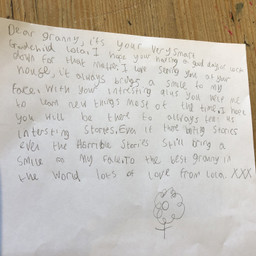 Dear granny, it's your very smart
Grandchild Lola, I hope your having a good day
down for that matter. I love seeing you at your
house, it always brings a smile to my
face. With your intresting you
to learn new things most of the time. I hope
you will be there to always tell us
intersting stories. Even if those boring stories
Even the Horrible stories still bring a
smile on my face. To the best granny in
the world lots of love from Lola XXX